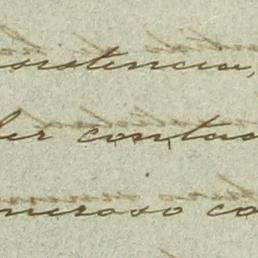 sistencia,
ler contac
meroso co